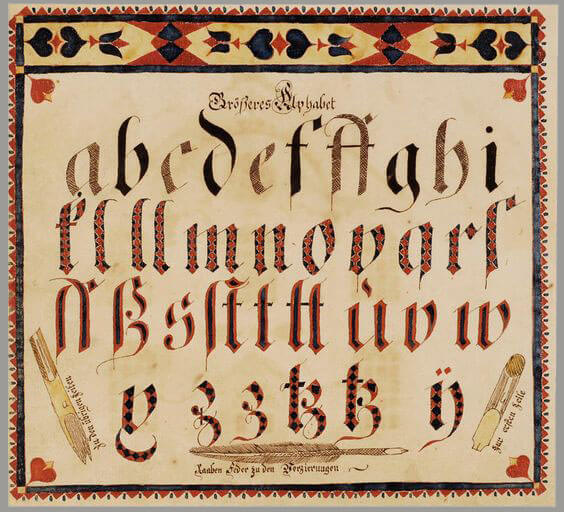 Größeres Alphabet
a b c d e f ff g h i
k l ll m n o p q r ſ
ſſ ß s ſt t tt u v w
x z z tz tz ÿ
Zu den übrigen Zeilen
Zur ersten Zeile
Raaben Feder zu den Verzierungen